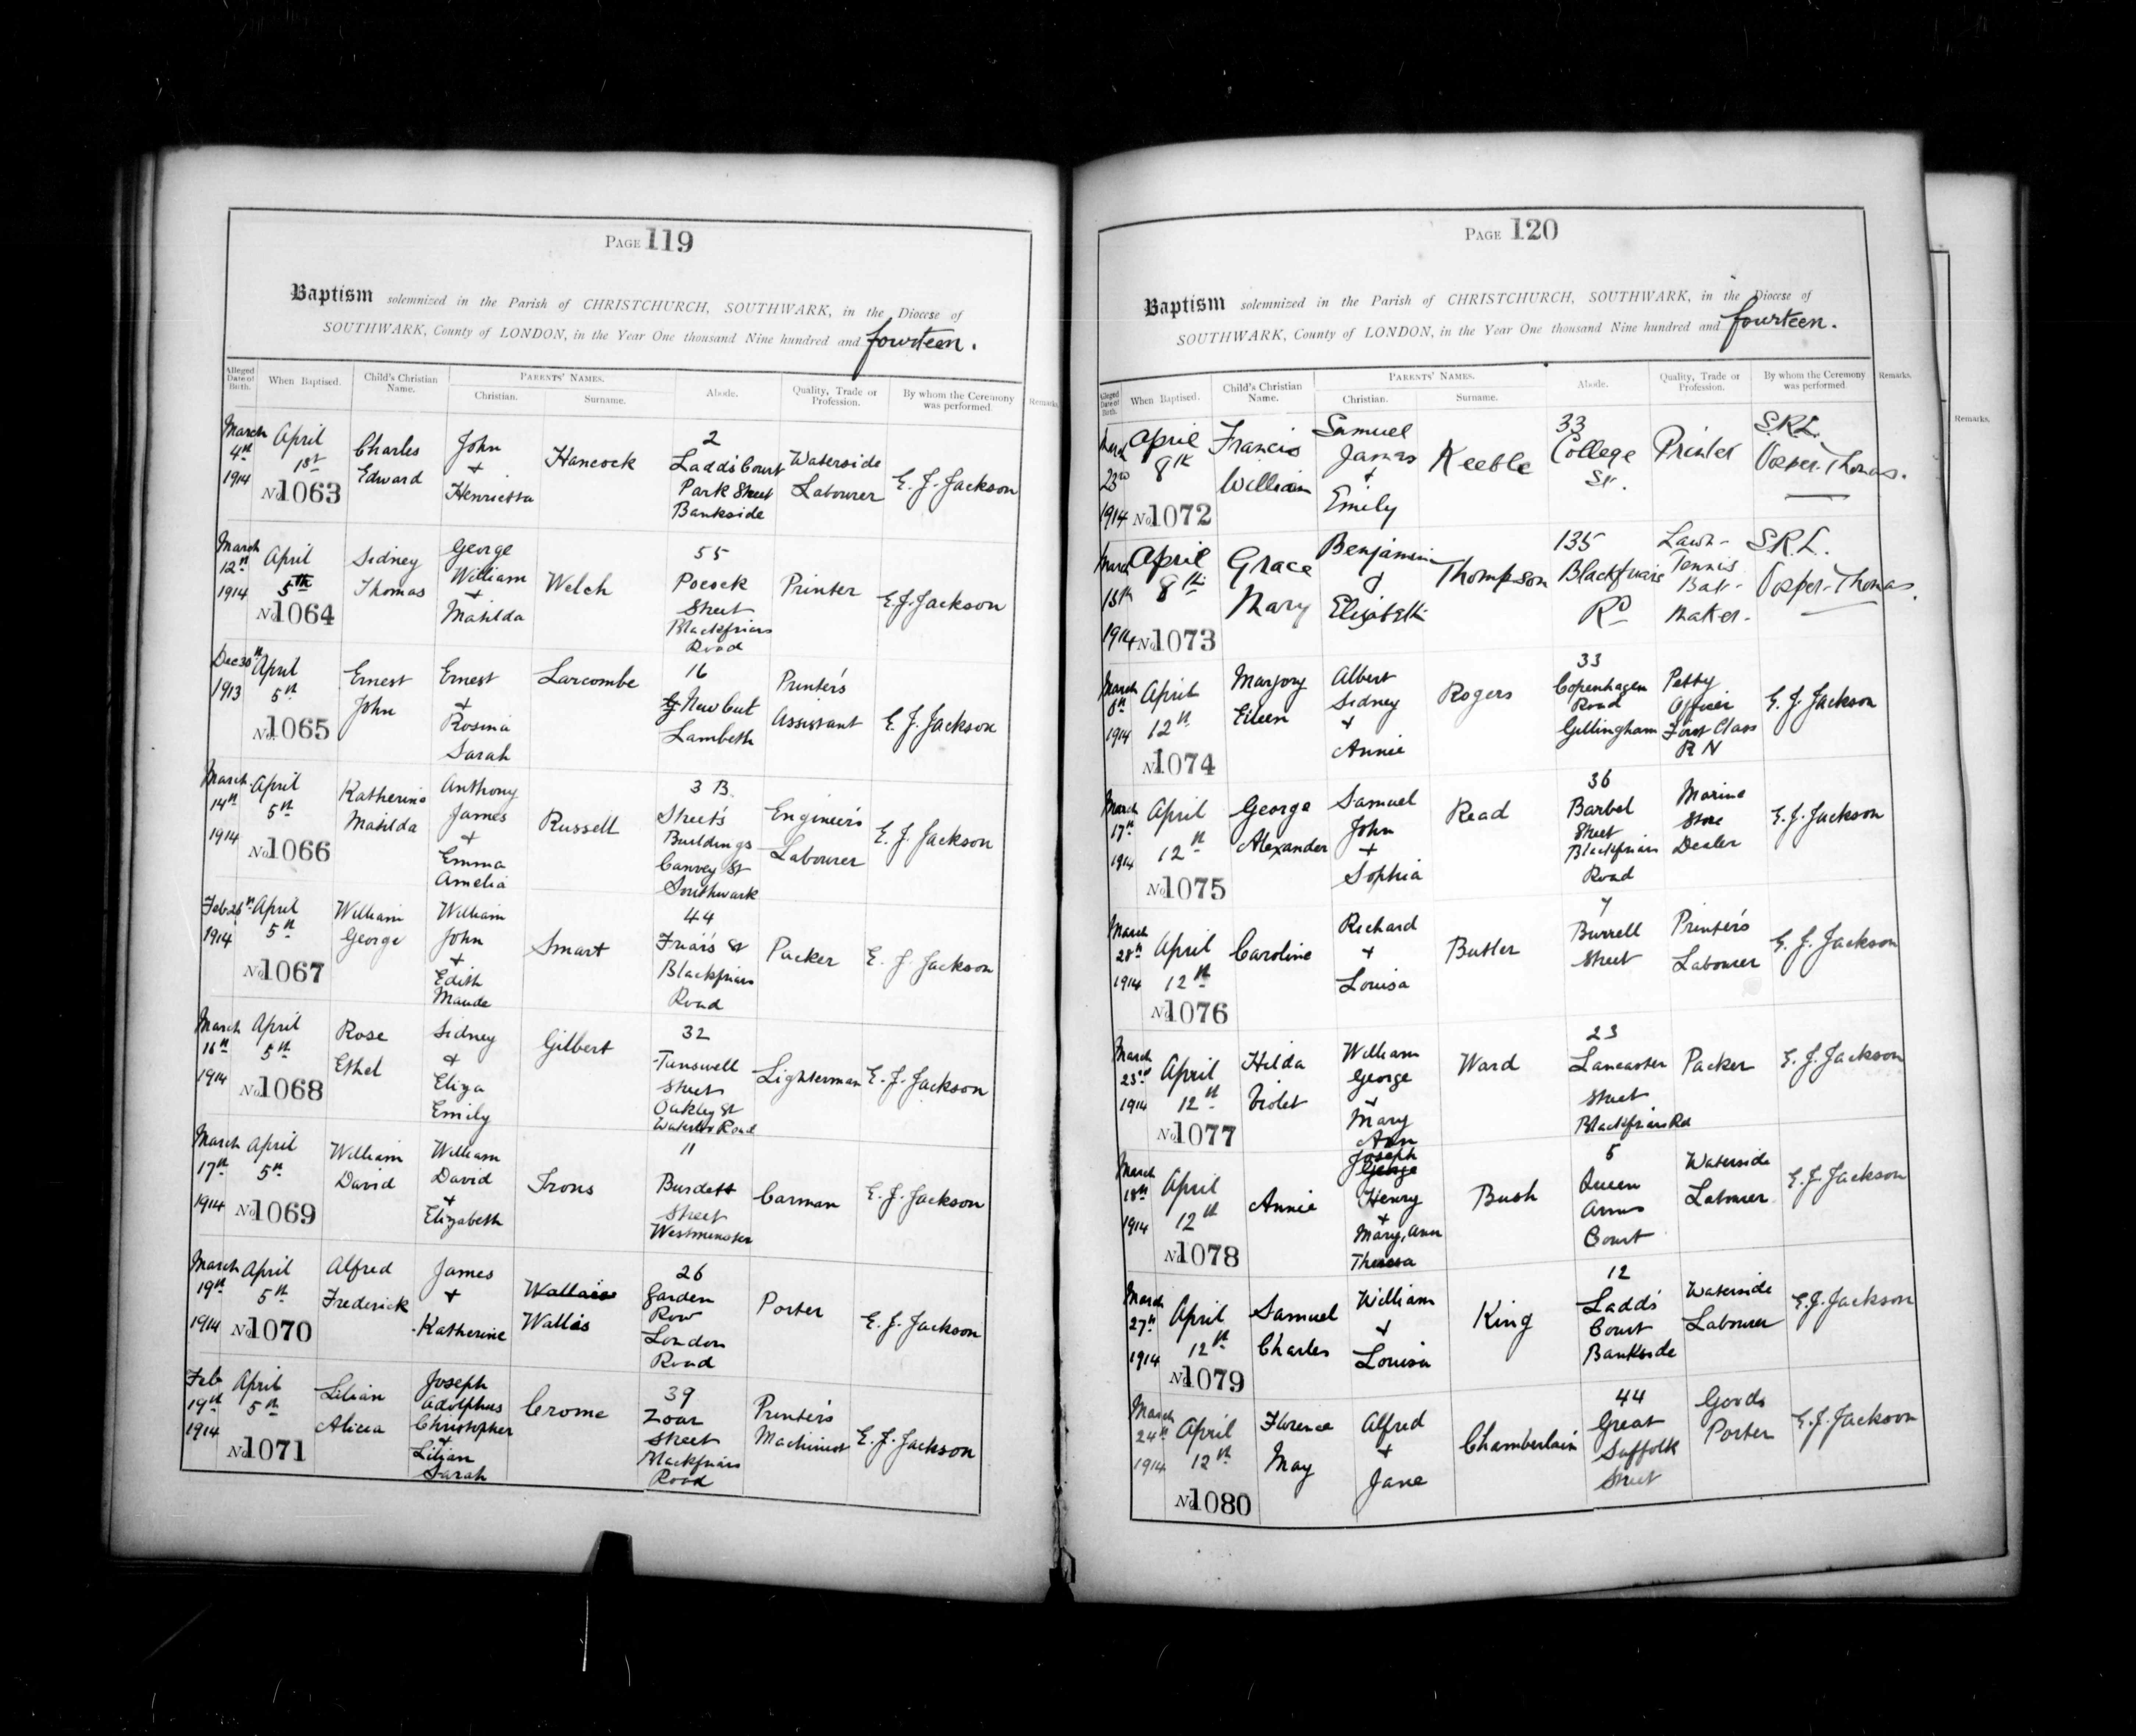 PAGE 119
Baptism solemnized in the Parish of CHRISTCHURCH, SOUTHWARK, in the Diocese of
SOUTHWARK, County of LONDON, in the Year One thousand Nine hundred and fourteen.
Alleged Date of Birth. When Baptised. Child's Christian Name. PARENTS' NAMES. Christian. Surname. Abode. Quality, Trade or Profession. By whom the Ceremony was performed Remarks
March 4th 1914 April 1st No 1063 Charles Edward John + Henrietta Hancock 2 Ladds Court Park Street Bankside Waterside Labourer E. J. Jackson
March 12th 1914 April 5th No 1064 Sidney Thomas George William + Matilda Welch 55 Pocock Street Blackfriars Road Printer E. J. Jackson
Dec 30th 1913 April 5th No 1065 Ernest John Ernest + Rosina Sarah Larcombe 16 New Cut Lambeth Printer's Assistant E. J. Jackson
March 14th 1914 April 5th No 1066 Katherine Matilda Anthony James + Emma Amelia Russell 3 B. Street's Buildings Canvey St Southwark Engineer's Labourer E. J. Jackson
Feb 26th 1914 April 5th No 1067 William George William John + Edith Maude Smart 44 Friar's St Blackfriars Road Packer E. J. Jackson
March 16th 1914 April 5th No 1068 Rose Ethel Sidney + Eliza Emily Gilbert 32 Tanswell Street Oakley St Waterloo Road Lighterman E. J. Jackson
March 17th 1914 April 5th No 1069 William David William David + Elizabeth Irons 11 Burdett Street Westminster Carman E. J. Jackson
March 19th 1914 April 5th No 1070 Alfred Frederick James + Katherine Wallace Wallis 26 Garden Row London Road Porter E. J. Jackson
Feb 19th 1914 April 5th No 1071 Lilian Alicea Joseph Adolphus Christopher + Lilian Sarah Crome 39 Zoar Street Blackfriars Road Printer's Machinist E. J. Jackson
PAGE 120
Baptism solemnized in the Parish of CHRISTCHURCH, SOUTHWARK, in the Diocese of
SOUTHWARK, County of LONDON, in the Year One thousand Nine hundred and fourteen.
Alleged Date of Birth. When Baptised. Child's Christian Name. PARENTS' NAMES. Christian. Surname. Abode. Quality, Trade or Profession. By whom the Ceremony was performed Remarks.
Remarks.
23rd 1914 April 8th No 1072 Francis William Samuel James + Emily Keeble 33 College St. Printer S.R.L. Vosper-Thomas.
March 15th 1914 April 8th No 1073 Grace Mary Benjamin & Elizabeth Thompson 135 Blackfriars Rd Lawn-Tennis Ball-Maker. S.R.L. Vosper-Thomas.
March 8th 1914 April 12th No 1074 Marjory Eileen Albert Sidney + Annie Rogers 33 Copenhagen Road Gillingham Petty Officer First Class R N E. J. Jackson
March 17th 1914 April 12th No 1075 George Alexander Samuel John + Sophia Read 36 Barbel Street Blackfriars Road Marine Store Dealer E. J. Jackson
March 28th 1914 April 12th No 1076 Caroline Richard + Louisa Butler 7 Burrell Street Printer's Labourer E. J. Jackson
March 23rd 1914 April 12th No 1077 Hilda Violet William George + Mary Ann Ward 23 Lancaster Street Blackfriars Rd Packer E. J. Jackson
March 18th 1914 April 12th No 1078 Annie Joseph George Henry + Mary, Ann Theresa Bush 5 Queen Arms Court Waterside Labourer E. J. Jackson
March 27th 1914 April 12th No 1079 Samuel Charles William + Louisa King 12 Ladds Court Bankside Waterside Labourer E. J. Jackson
March 24th 1914 April 12th No 1080 Florence May Alfred + Jane Chamberlain 44 Great Suffolk Street Goods Porter E. J. Jackson